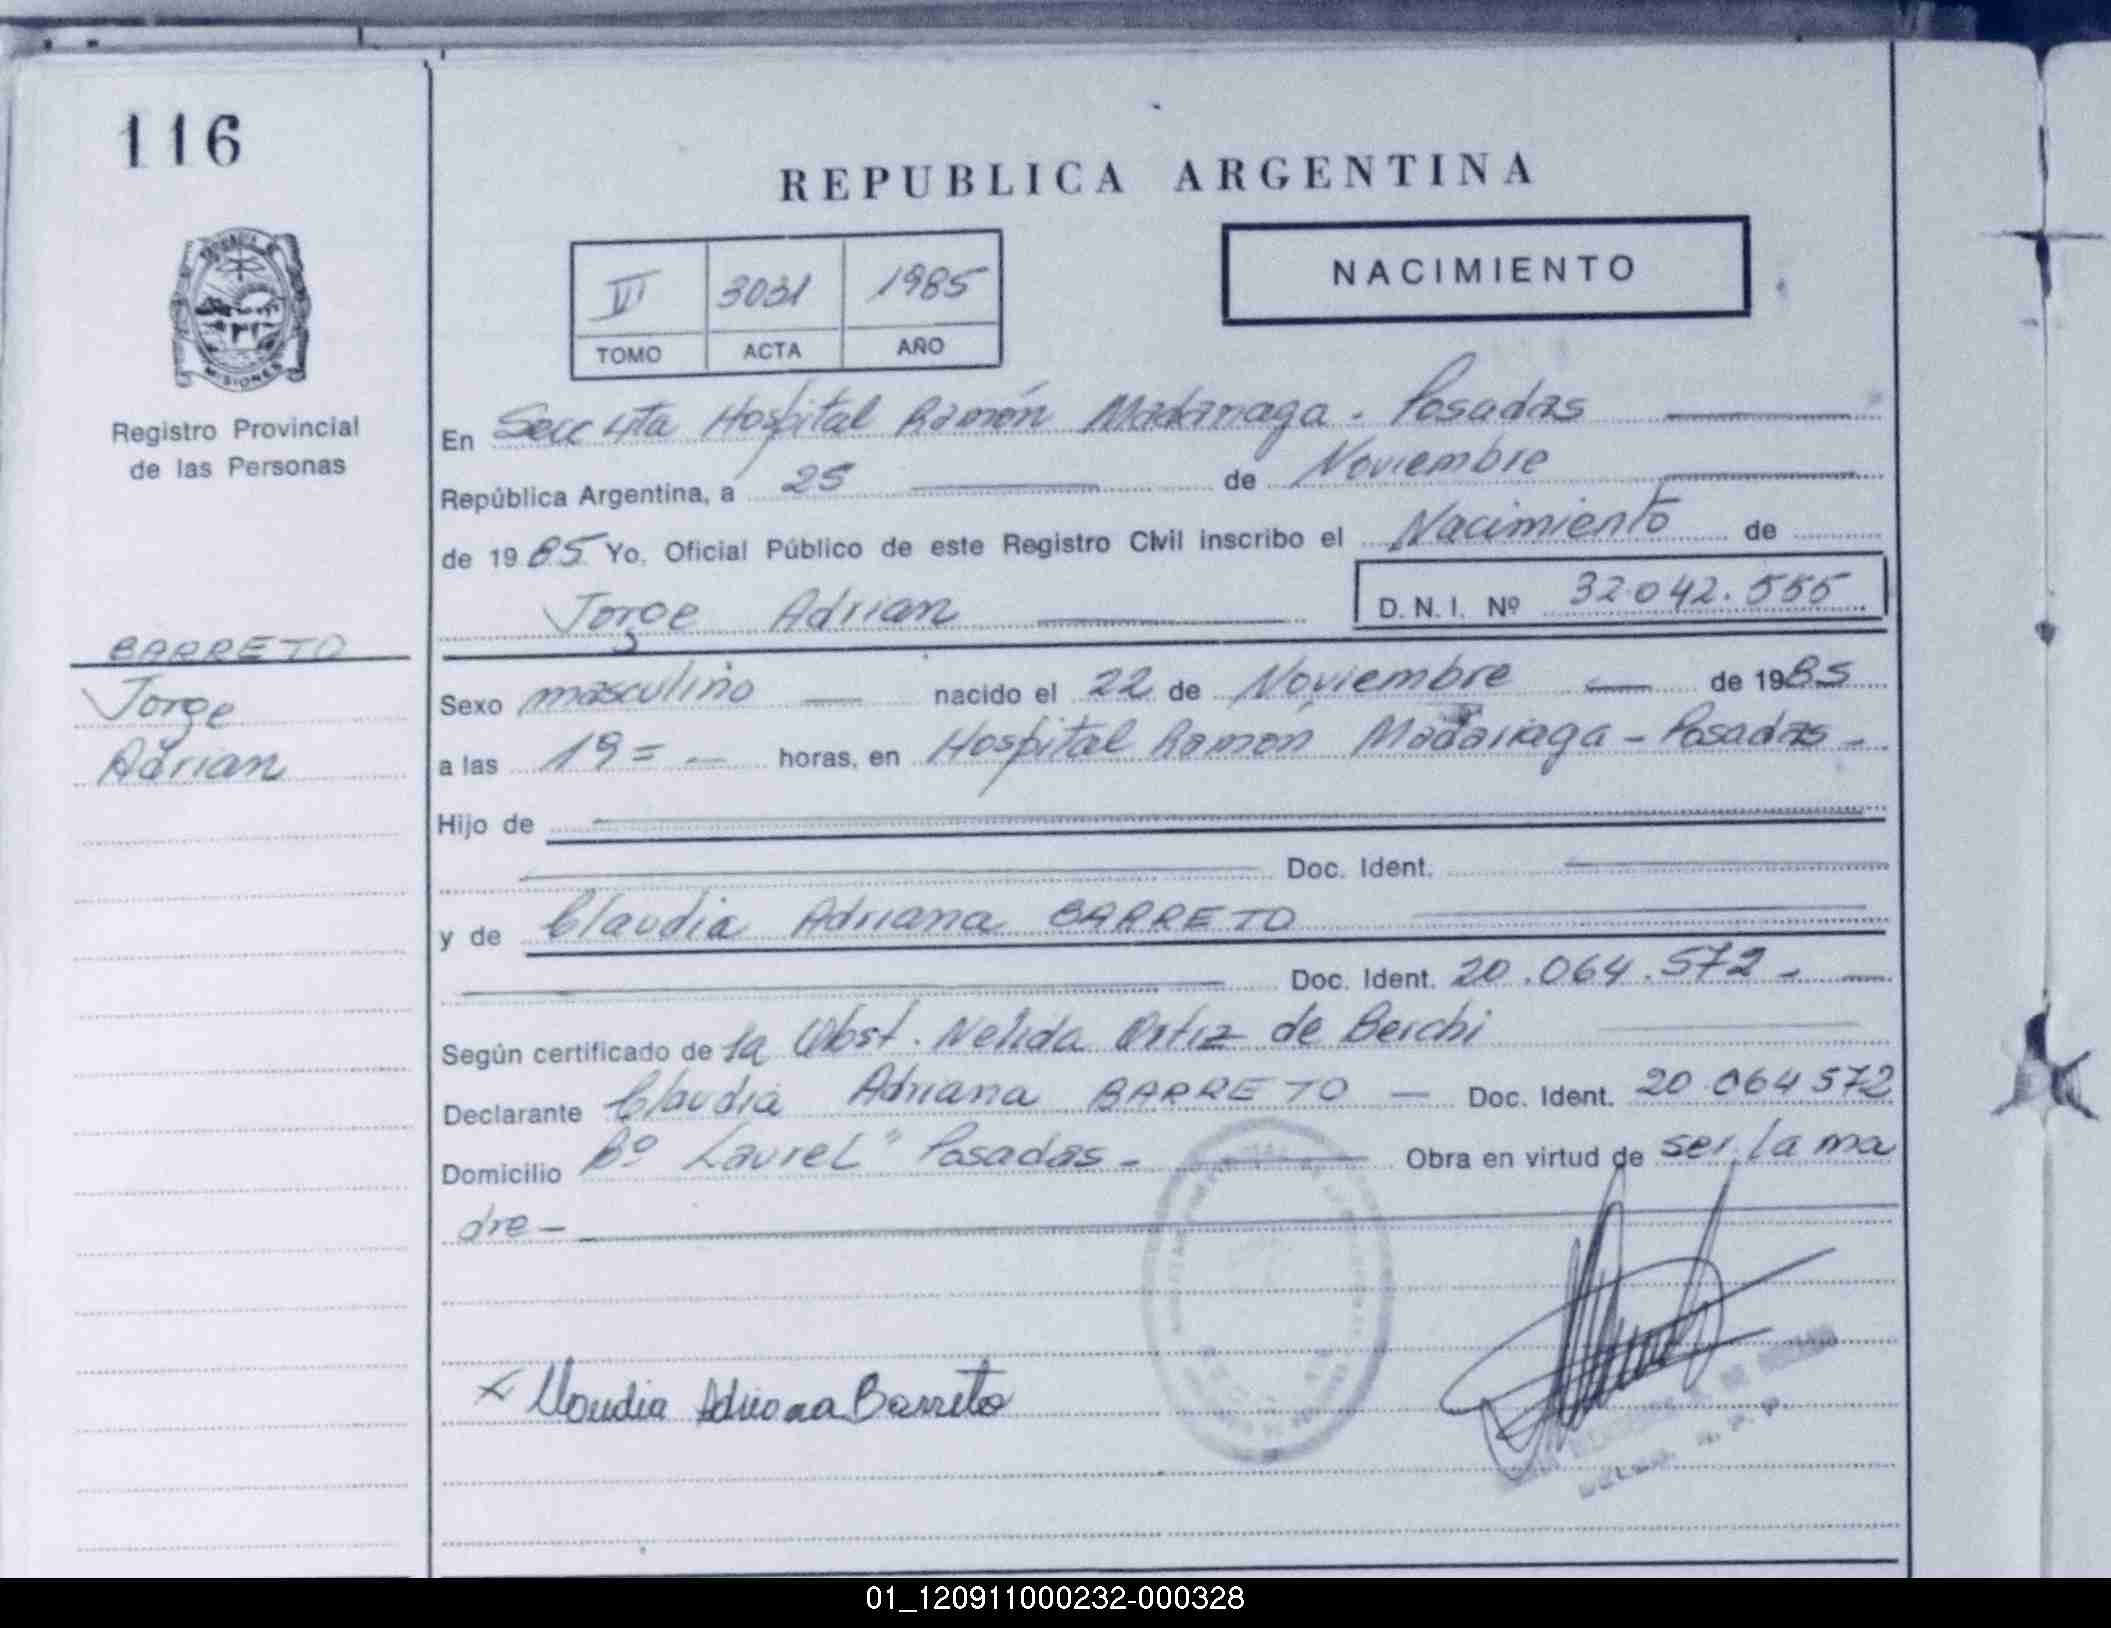 116
REPUBLICA ARGENTINA
NACIMIENTO
VI 3031 1985
TOMO ACTA AÑO
MISIONES
Registro Provincial
de las Personas
En Secc 4ta Hospital Ramón Madariaga - Posadas
República Argentina, a 25 de Noviembre
de 1985 Yo, Oficial Público de este Registro Civil inscribo el Nacimiento de
Jorge Adrian D.N.I. Nº 32.042.555
BARRETO
Jorge
Adrian
Sexo masculino nacido el 22 de Noviembre de 1985
a las 19= horas, en Hospital Ramón Madariaga - Posadas -
Hijo de
Doc. Ident.
y de Claudia Adriana BARRETO
Doc. Ident. 20.064.572 -
Según certificado de la Obst. Nelida Ortiz de Berchi
Declarante Claudia Adriana BARRETO - Doc. Ident. 20.064572
Domicilio Bº Laurel" Posadas - Obra en virtud de ser la ma
dre -
x Claudia Adriana Barreto
01_120911000232-000328